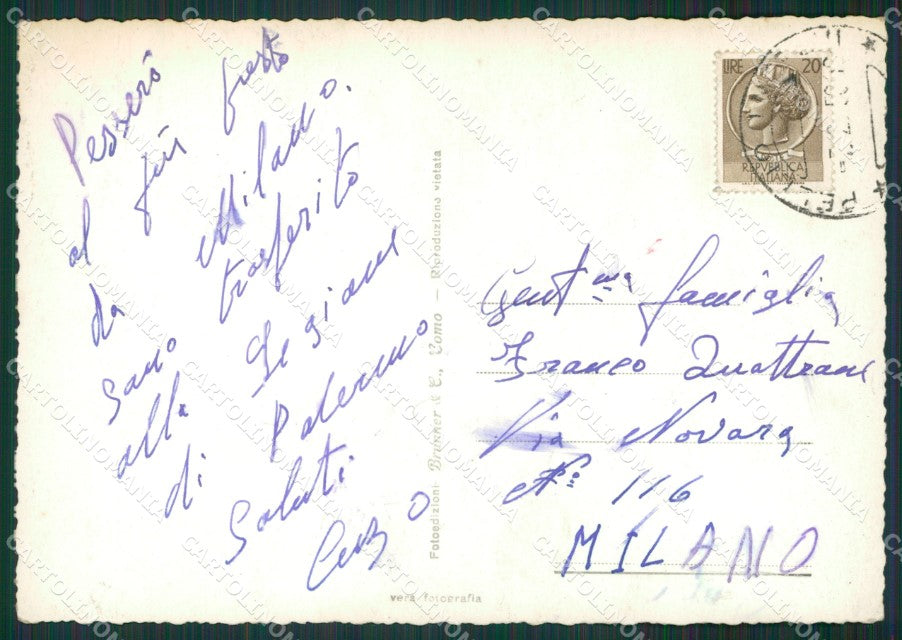 Passerò
al più presto
da Milano.
Sono trasferito
alla Legione
di Palermo
Saluti
Enzo
Fotoedizioni Brunner & C., Como — Riproduzione vietata
vera fotografia
LIRE 20
REPVBBLICA
ITALIANA
Gent.ma famiglia
Franco Quattrone
Via Novara
N° 116
MILANO
CARTOLINOMANIA